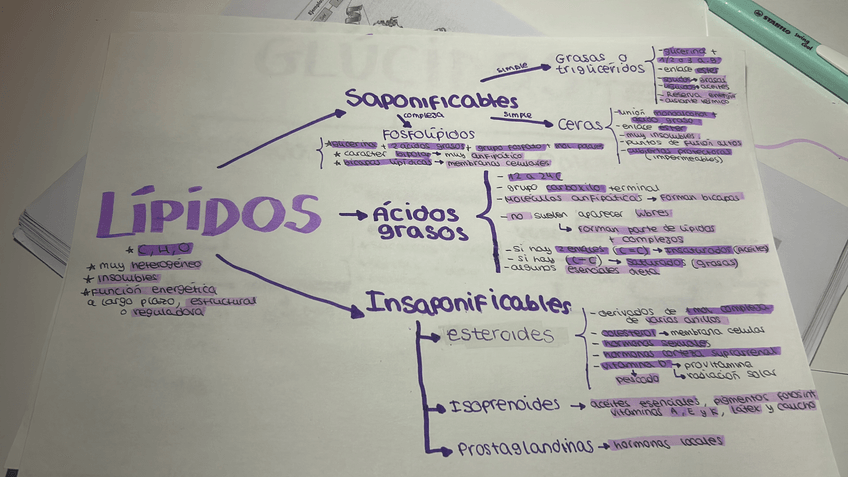 GLÚCI
STABILO
swing
cool
LÍPIDOS
* C, H, O
* muy heterogéneo
* insolubles
* Función energética
a largo plazo, estructural
o reguladora
Saponificables
simple
Grasas o
triglicéridos
- glicerina +
1/2 o 3 a.g.
- enlace ester
grasas
aceites
- reserva energía
- aislante térmico
simple
Ceras
- unión monoalcohol +
ácido graso
- enlace ester
- muy insolubles
- puntos de fusión altos
protectoras
(impermeables)
compleja
FOSFOLÍPIDOS
* glicerina + 2 ácidos grasos + grupo fosfato +
* carácter → muy anfipático
* bicapas lipídicas → membranas celulares
Ácidos
grasos
- 12 a 24C
- grupo carboxilo terminal
- Moléculas anfipáticas → forman bicapas
- no suelen aparecer libres
↳ forman parte de lípidos
+ complejos
- si hay 2 enlaces (C=C) → insaturados (aceites)
- si hay (C-C) → saturados (grasas)
- algunos esenciales dieta
Insaponificables
esteroides
- derivados de
de varios anillos
- colesterol → membrana celular
- hormonas sexuales
- hormonas corteza suprarrenal
- vitamina D → provitamina
↳ radiación solar
pescado
Isoprenoides → aceites esenciales, pigmentos fotosínt
vitaminas A, E y K, látex y caucho
Prostaglandinas → hormonas locales